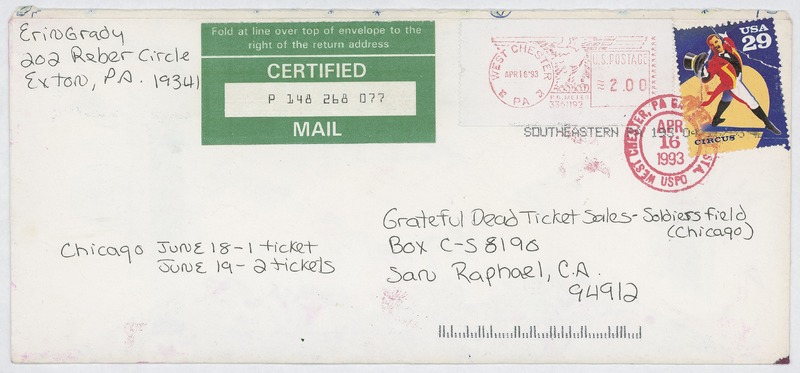 Erin Grady
202 Reber Circle
Exton, PA. 19341
Fold at line over top of envelope to the
right of the return address
CERTIFIED
P 148 268 077
MAIL
WEST CHESTER
APR 16'93
PA
U.S. POSTAGE
2.00
P.B. METER
3351192
US
29
CIRCUS
SOUTHEASTERN PA
WEST CHESTER, PA
STA.
APR
16
1993
USPO
Grateful Dead Ticket Sales - Soldiers field
(Chicago)
Box C-S 8190
San Raphael, C.A.
94912
Chicago JUNE 18 - 1 ticket
JUNE 19 - 2 tickets